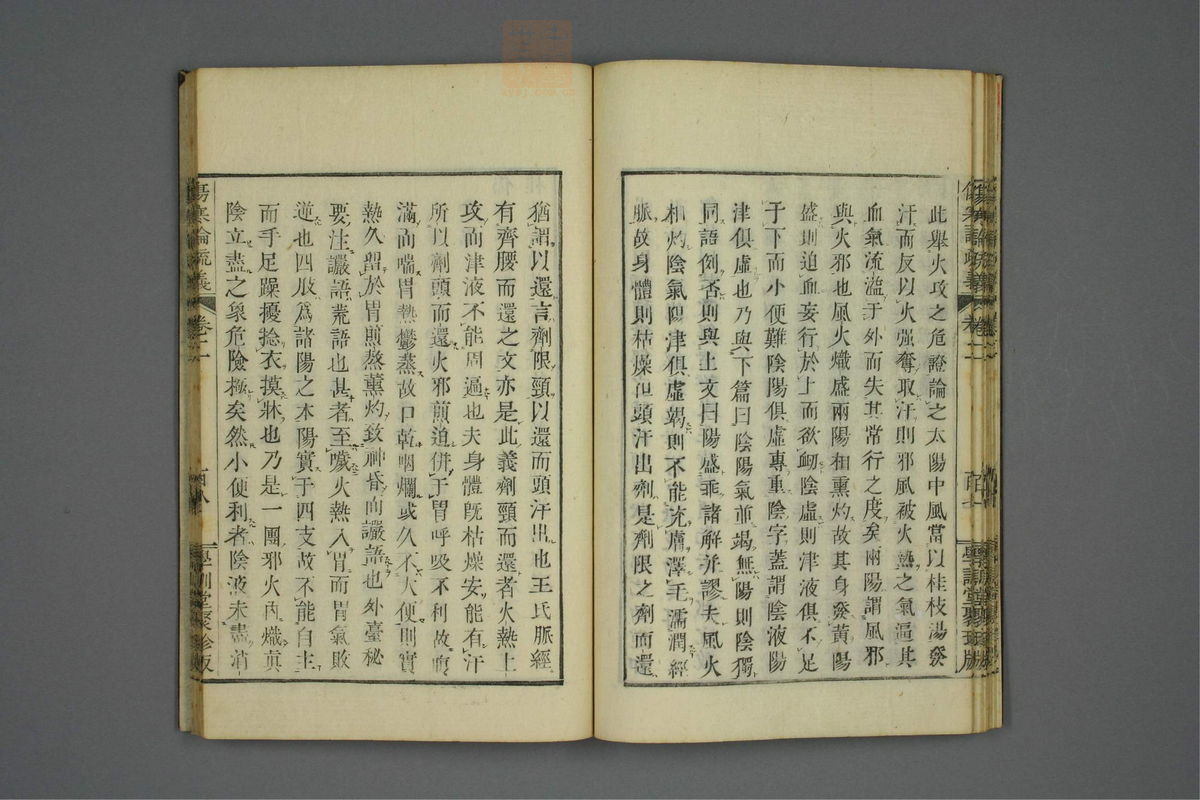 此舉火攻之危證論之太陽中風當以桂枝湯發
汗而反以火強奪取汗則邪風被火熱之氣逼其
血氣流溢于外而失其常行之度矣兩陽謂風邪
與火邪也風火熾盛兩陽相熏灼故其身發黃陽
盛則迫血妄行於上而欲衂陰虛則津液俱不足
于下而小便難陰陽俱虛專重陰字蓋謂陰液陽
津俱虛也乃與下篇曰陰陽氣並竭無陽則陰獨
同語例否則與上文曰陽盛乖諸解并謬夫風火
相灼陰氣陽津俱虛竭則不能充膚澤毛濡潤經
脈故身體則枯燥但頭汗出劑是劑限之劑而還
傷寒論疏義
卷二
學訓堂聚珍版
猶謂以還言劑限頸以還而頭汗出也王氏脈經
有齊腰而還之文亦是此義劑頸而還者火熱上
攻而津液不能周遍也夫身體既枯燥安能有汗
所以劑頭而還火邪煎迫併于胃呼吸不利故腹
滿而喘胃熱鬱蒸故口乾咽爛或久不大便則實
熱久留於胃煎熬薰灼致神昏而讝語也外臺秘
要注讝語荒語也甚者至噦火熱入胃而胃氣敗
逆也四肢爲諸陽之本陽實于四支故不能自主
而手足躁擾捻衣摸牀也乃是一團邪火內熾真
陰立盡之象危險極矣然小便利者陰液未盡消
傷寒論疏義
卷二
學訓堂聚珍版